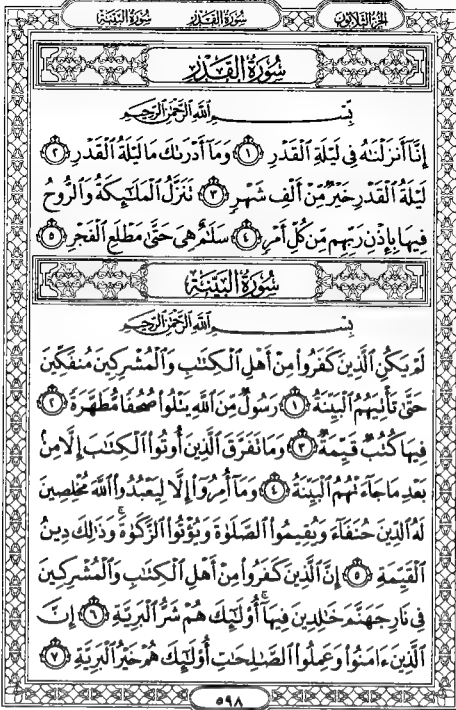 الجزء الثلاثون سورة القدر سورة البينة
سُورَةُ الْقَدْرِ
بِسْمِ اللَّهِ الرَّحْمَٰنِ الرَّحِيمِ
إِنَّا أَنزَلْنَٰهُ فِى لَيْلَةِ ٱلْقَدْرِ ١ وَمَا أَدْرَىٰكَ مَا لَيْلَةُ ٱلْقَدْرِ ٢
لَيْلَةُ ٱلْقَدْرِ خَيْرٌ مِّنْ أَلْفِ شَهْرٍ ٣ تَنَزَّلُ ٱلْمَلَٰٓئِكَةُ وَٱلرُّوحُ
فِيهَا بِإِذْنِ رَبِّهِم مِّن كُلِّ أَمْرٍ ٤ سَلَٰمٌ هِىَ حَتَّىٰ مَطْلَعِ ٱلْفَجْرِ ٥
سُورَةُ الْبَيِّنَةِ
بِسْمِ اللَّهِ الرَّحْمَٰنِ الرَّحِيمِ
لَمْ يَكُنِ ٱلَّذِينَ كَفَرُوا۟ مِنْ أَهْلِ ٱلْكِتَٰبِ وَٱلْمُشْرِكِينَ مُنفَكِّينَ
حَتَّىٰ تَأْتِيَهُمُ ٱلْبَيِّنَةُ ١ رَسُولٌ مِّنَ ٱللَّهِ يَتْلُوا۟ صُحُفًا مُّطَهَّرَةً ٢
فِيهَا كُتُبٌ قَيِّمَةٌ ٣ وَمَا تَفَرَّقَ ٱلَّذِينَ أُوتُوا۟ ٱلْكِتَٰبَ إِلَّا مِنۢ
بَعْدِ مَا جَآءَتْهُمُ ٱلْبَيِّنَةُ ٤ وَمَآ أُمِرُوٓا۟ إِلَّا لِيَعْبُدُوا۟ ٱللَّهَ مُخْلِصِينَ
لَهُ ٱلدِّينَ حُنَفَآءَ وَيُقِيمُوا۟ ٱلصَّلَوٰةَ وَيُؤْتُوا۟ ٱلزَّكَوٰةَ ۚ وَذَٰلِكَ دِينُ
ٱلْقَيِّمَةِ ٥ إِنَّ ٱلَّذِينَ كَفَرُوا۟ مِنْ أَهْلِ ٱلْكِتَٰبِ وَٱلْمُشْرِكِينَ
فِى نَارِ جَهَنَّمَ خَٰلِدِينَ فِيهَآ ۚ أُو۟لَٰٓئِكَ هُمْ شَرُّ ٱلْبَرِيَّةِ ٦ إِنَّ
ٱلَّذِينَ ءَامَنُوا۟ وَعَمِلُوا۟ ٱلصَّٰلِحَٰتِ أُو۟لَٰٓئِكَ هُمْ خَيْرُ ٱلْبَرِيَّةِ ٧
٥٩٨